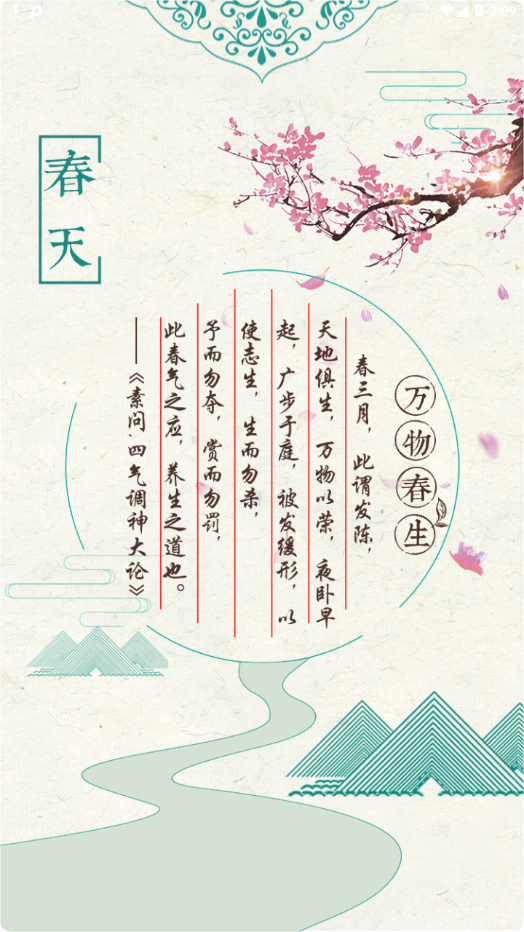 3:09
春天
万物春生
春三月，此谓发陈，
天地俱生，万物以荣，夜卧早
起，广步于庭，被发缓形，以
使志生，生而勿杀，
予而勿夺，赏而勿罚，
此春气之应，养生之道也。
——《素问·四气调神大论》